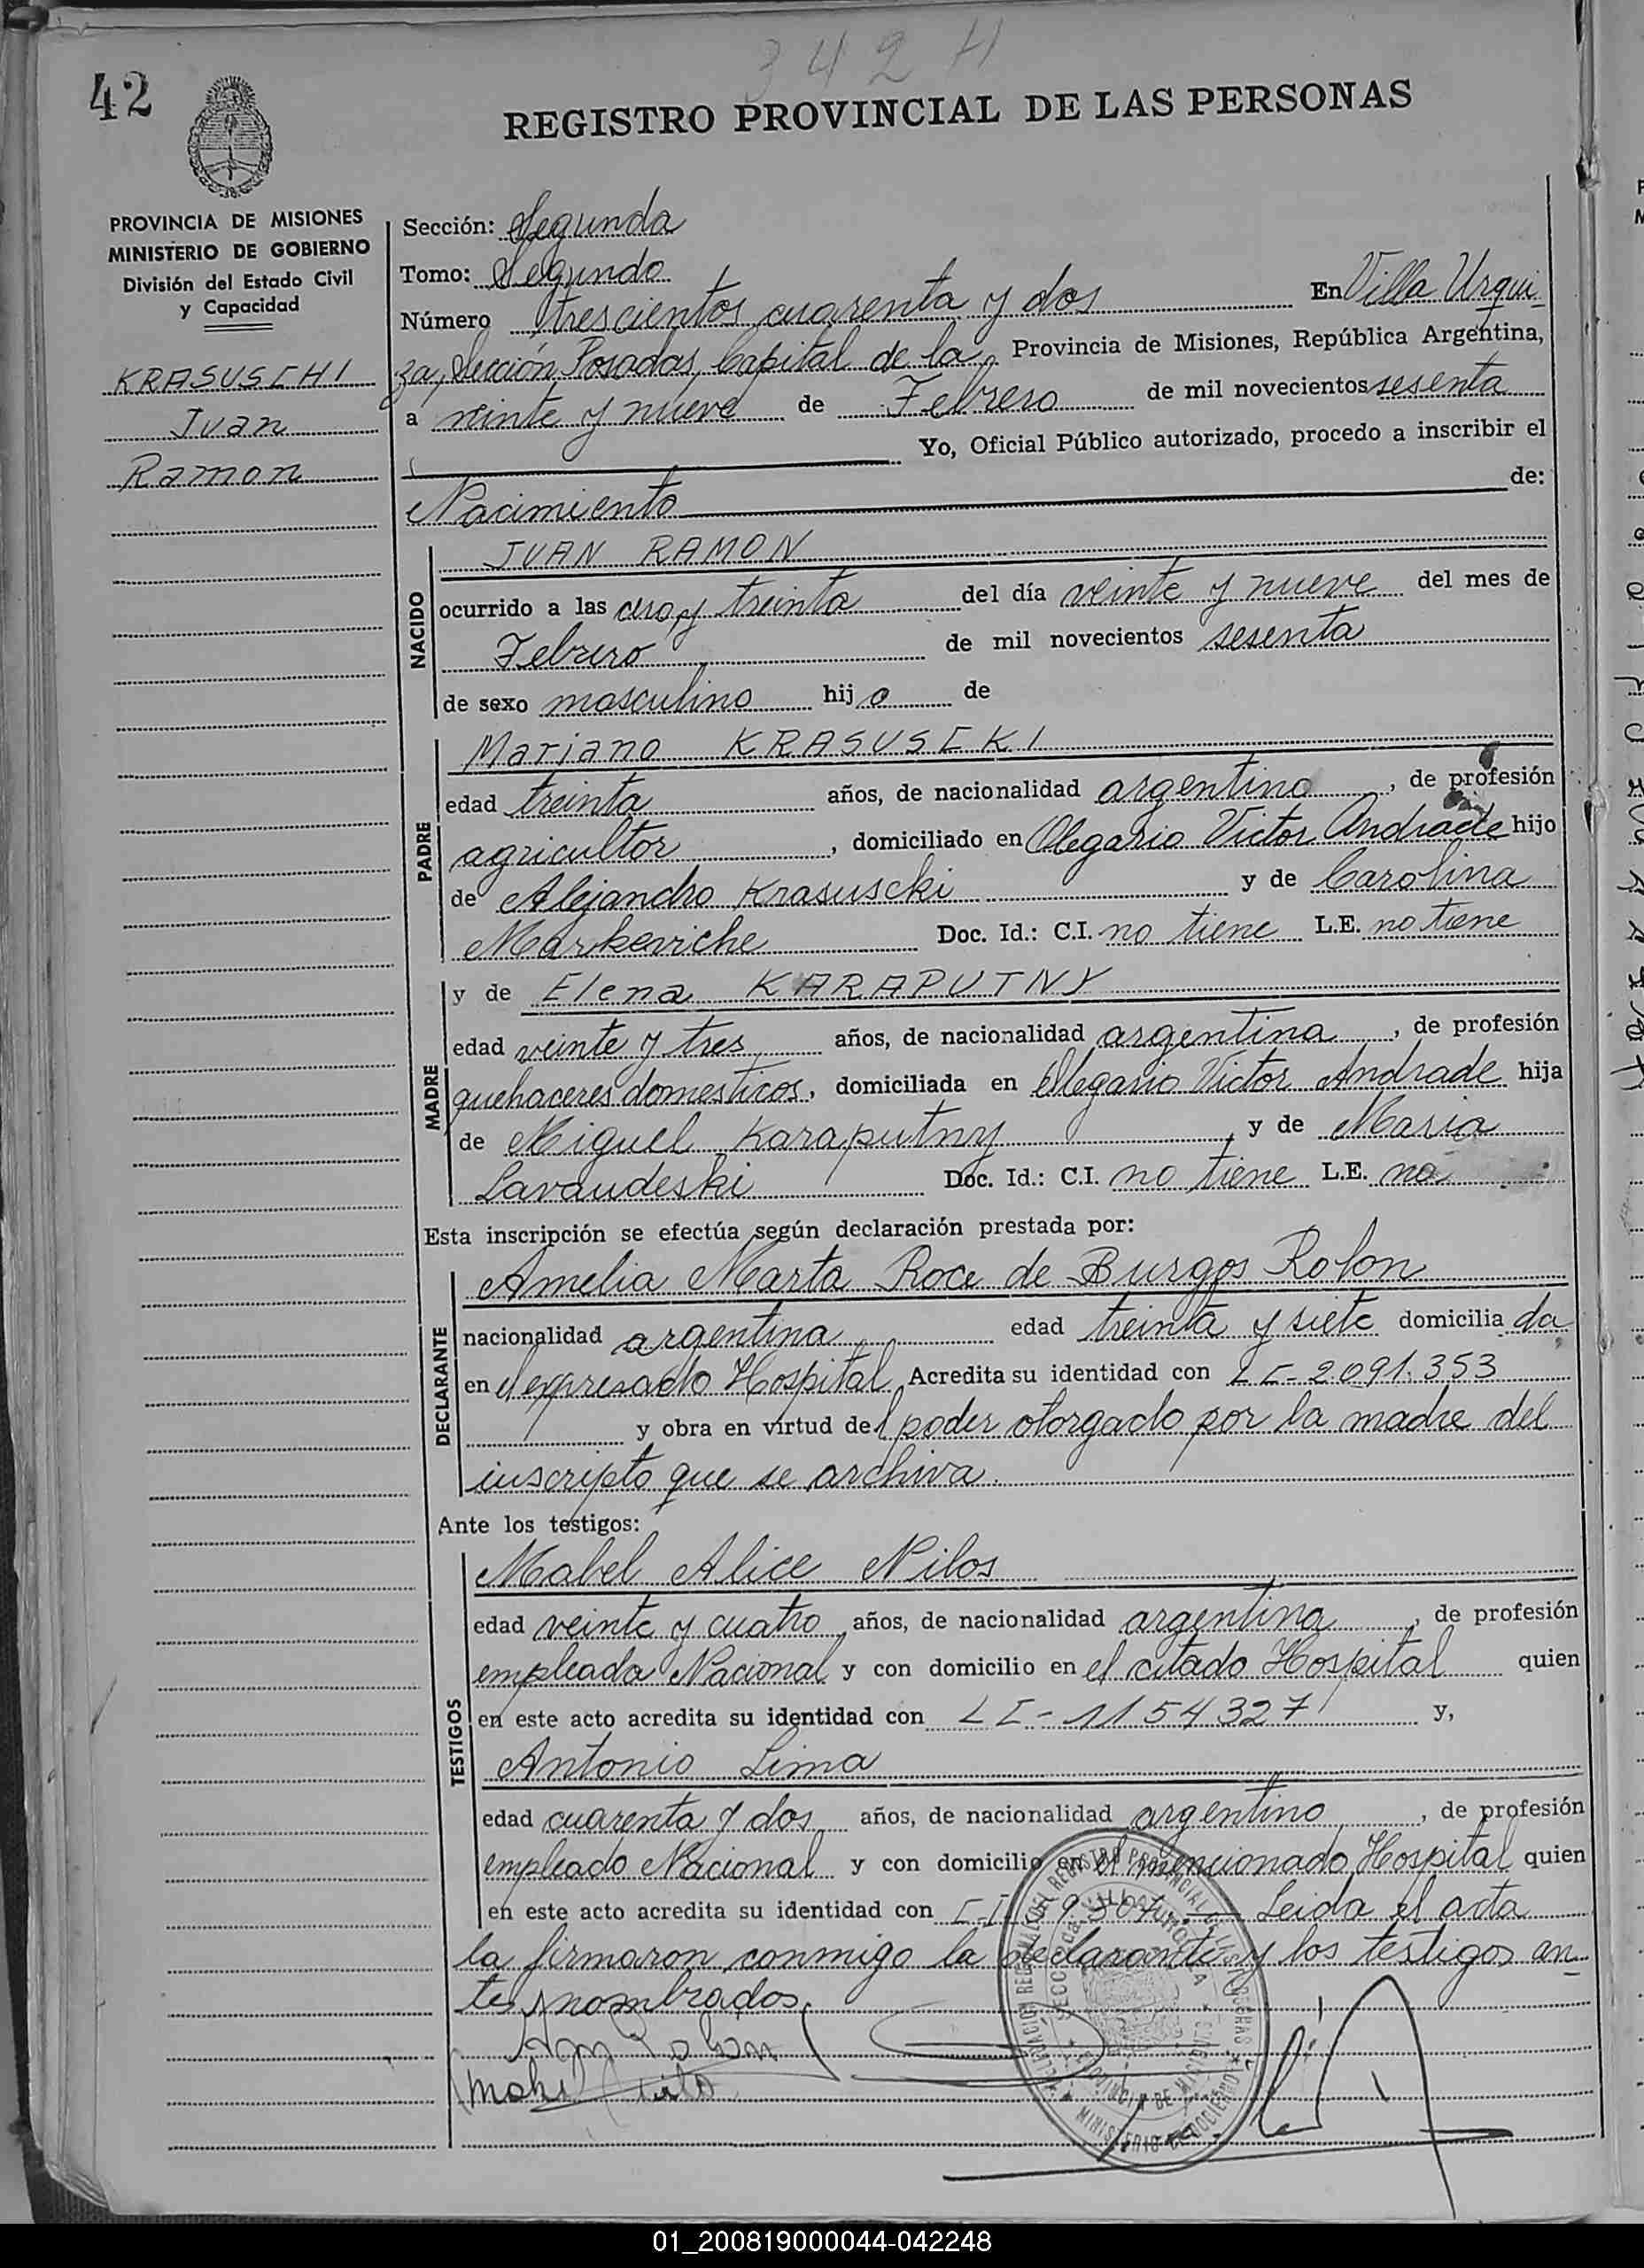 342 H
42
REGISTRO PROVINCIAL DE LAS PERSONAS
PROVINCIA DE MISIONES
MINISTERIO DE GOBIERNO
División del Estado Civil
y Capacidad
KRASUSCHI
Juan
Ramon
Sección: Segunda
Tomo: Segundo
Número trescientos cuarenta y dos En Villa Urqui-
za, Sección Posadas, Capital de la Provincia de Misiones, República Argentina,
a veinte y nueve de Febrero de mil novecientos sesenta
Yo, Oficial Público autorizado, procedo a inscribir el
Nacimiento de:
NACIDO
JUAN RAMON
ocurrido a las cero y treinta del día veinte y nueve del mes de
Febrero de mil novecientos sesenta
de sexo masculino hijo de
PADRE
Mariano KRASUSCKI
edad treinta años, de nacionalidad argentino, de profesión
agricultor, domiciliado en Olegario Victor Andrade hijo
de Alejandro Krasuscki y de Carolina
Markeviche Doc. Id.: C.I. no tiene L.E. no tiene
MADRE
y de Elena KARAPUTNY
edad veinte y tres años, de nacionalidad argentina, de profesión
quehaceres domesticos, domiciliada en Olegario Victor Andrade hija
de Miguel Karaputny y de Maria
Lavaudeski Doc. Id.: C.I. no tiene L.E. no
Esta inscripción se efectúa según declaración prestada por:
DECLARANTE
Amelia Marta Roce de Burgos Rolon
nacionalidad argentina edad treinta y siete domiciliada
en el expresado Hospital Acredita su identidad con LC-2091.353
y obra en virtud del poder otorgado por la madre del
inscripto que se archiva.
Ante los testigos:
TESTIGOS
Mabel Alice Nilos
edad veinte y cuatro años, de nacionalidad argentina, de profesión
empleada Nacional y con domicilio en el citado Hospital quien
en este acto acredita su identidad con LC-1154327 y,
Antonio Lima
edad cuarenta y dos años, de nacionalidad argentino, de profesión
empleado Nacional y con domicilio en el mencionado Hospital quien
en este acto acredita su identidad con Leida el acta
la firmaron conmigo la declarante y los testigos an-
tes nombrados.
01_200819000044-042248